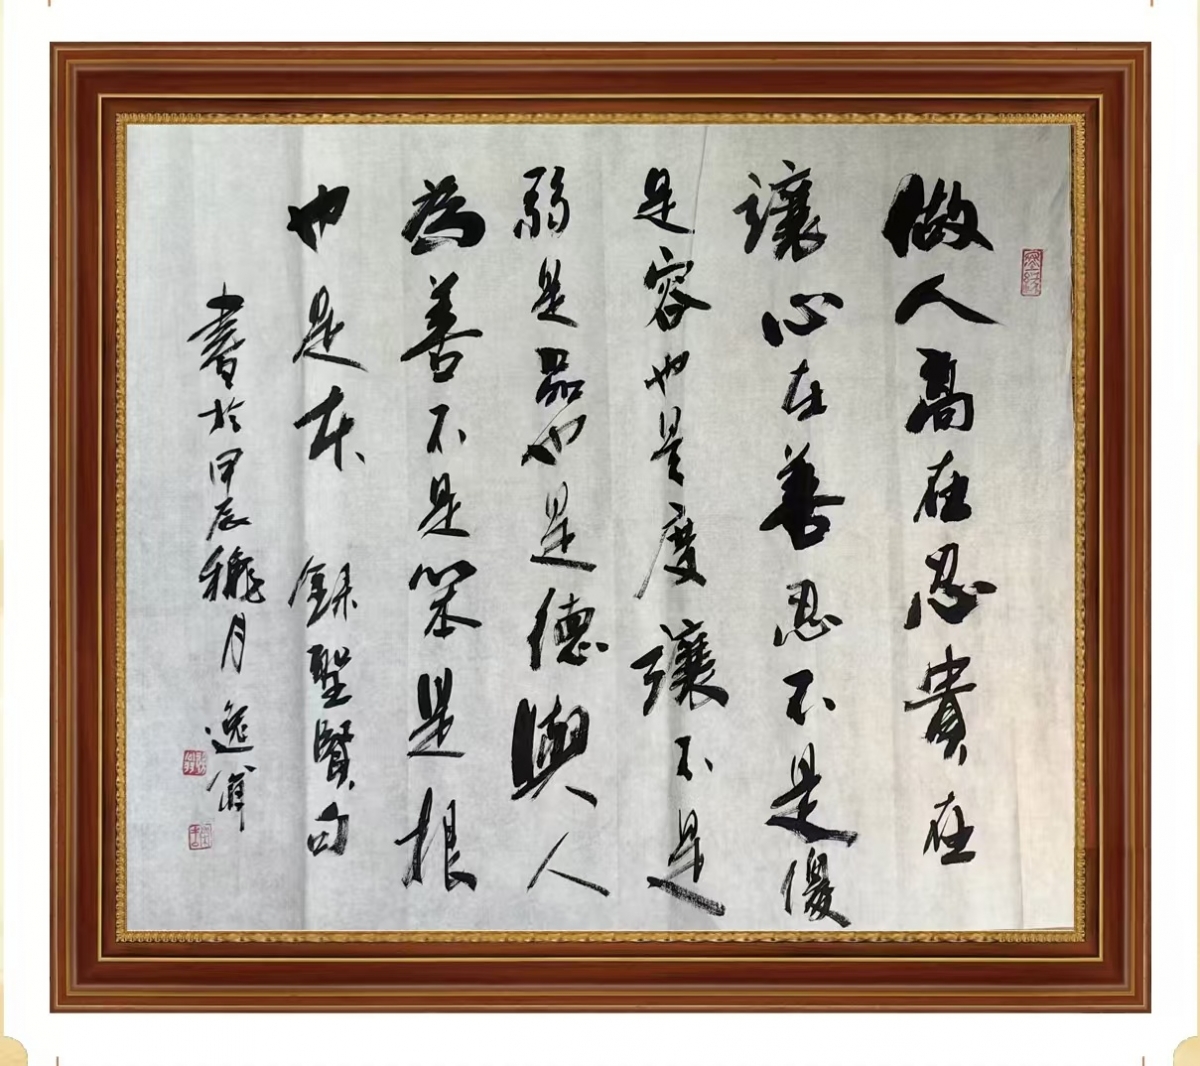 做人高在忍貴在
讓心在善忍不是傻
是容也是度讓不是
弱是品也是德與人
為善不是笨是根
也是本 録聖賢句
書於甲辰穐月 逸軍